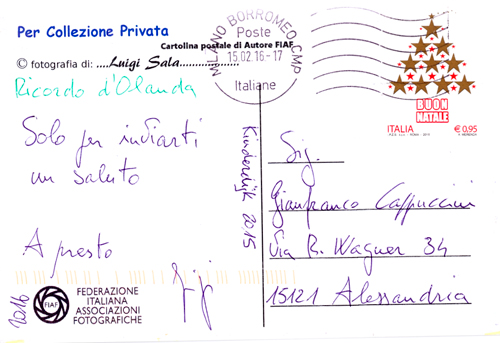 Per Collezione Privata
Cartolina postale di Autore FIAF
© fotografia di: ....Luigi Sala....................
Ricordo d'Olanda
Solo per inviarti
un saluto
A presto
2016
FIAF
FEDERAZIONE
ITALIANA
ASSOCIAZIONI
FOTOGRAFICHE
Kinderdijk 2015
MILANO BORROMEO CMP
Poste
15.02.16-17
Italiane
BUON
NATALE
ITALIA €0,95
Sig.
Gianfranco Cappuccini
Via R. Wagner 34
15121 Alessandria